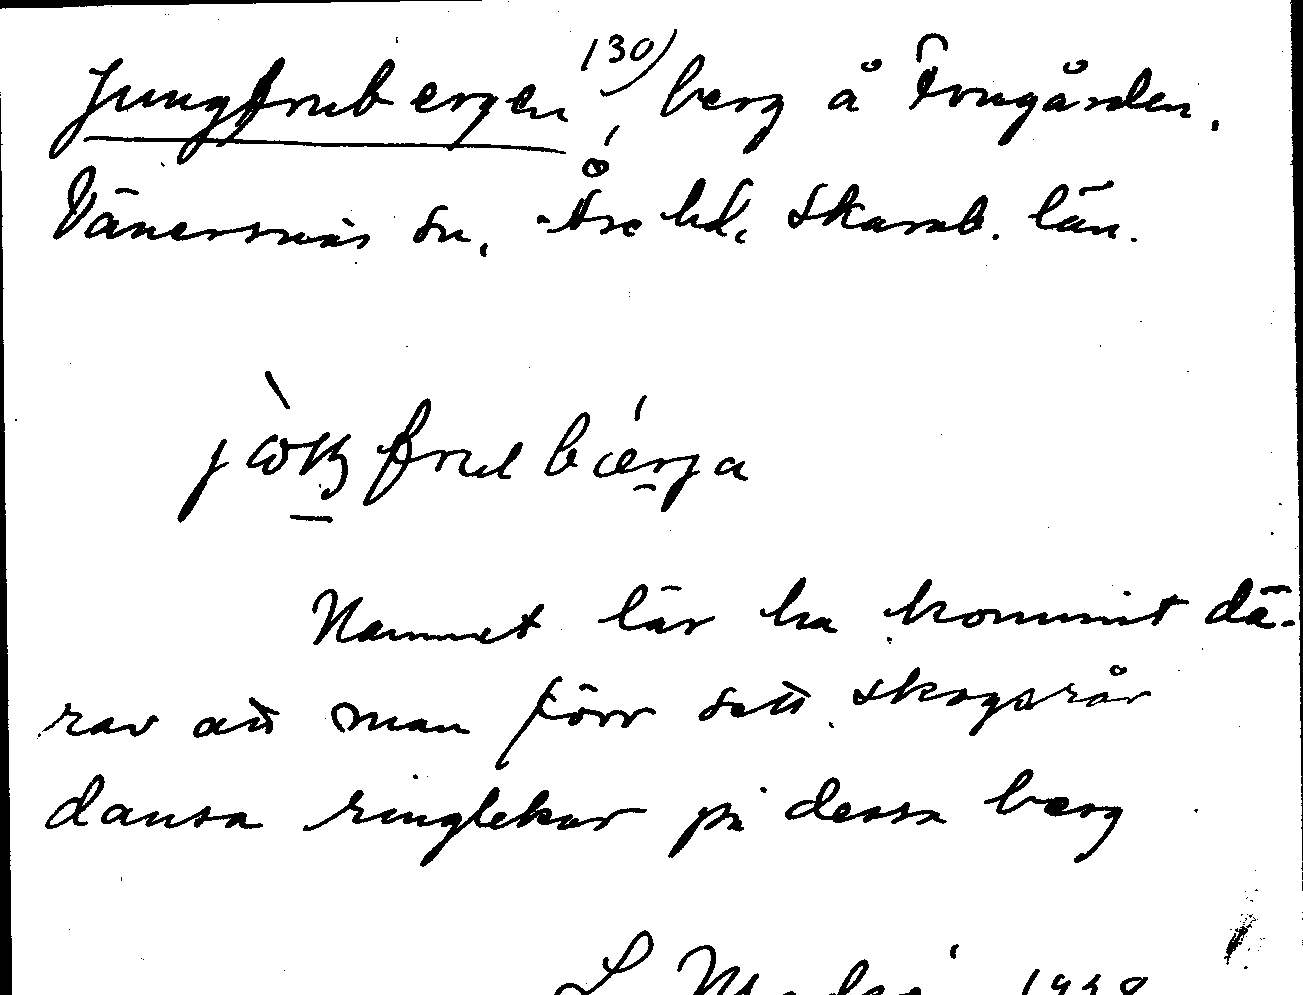 Jungfrubergen, 130) berg å Frugården.
Vänersnäs sn. Åse hd. Skarab. län.
Namnet lär ha kommit dä-
rav att man förr sett skogsrår
dansa ringlekar på dessa berg